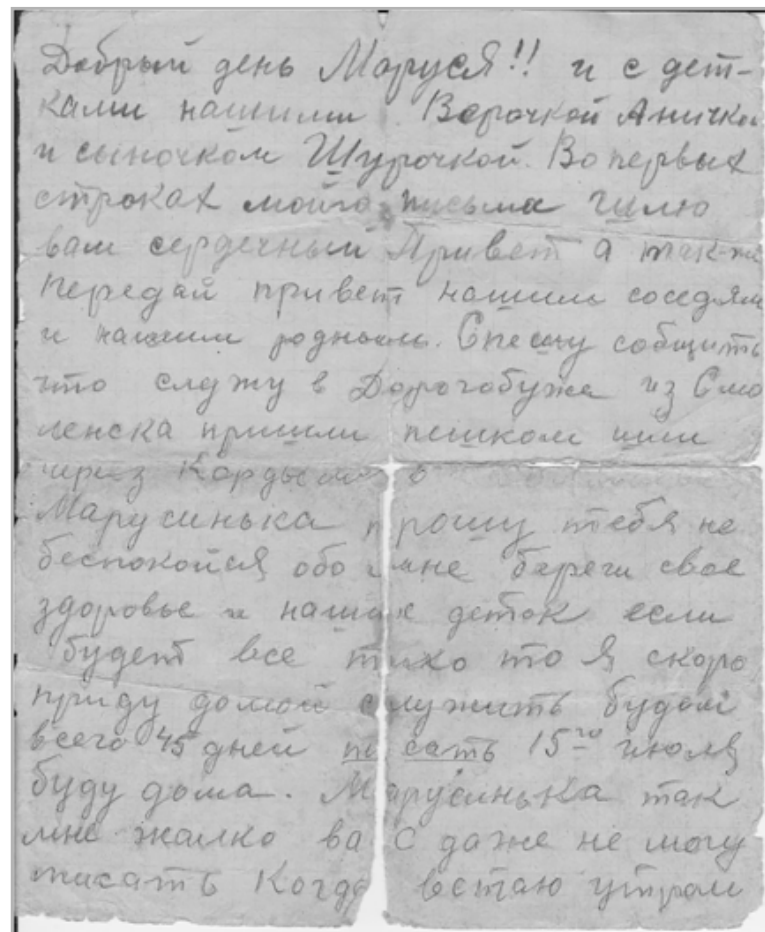 Добрый день Маруся!! и с дет-
ками нашими Верочкой Аничкой
и сыночком Шурочкой. Во первых
строках мойго письма шлю
вам сердечный Привет а так-же
передай привет нашим соседям
и нашим родным. Спешу собщить
что служу в Дорогобуже из Смо
ленска пришли пешком шли
через
Марусинька прошу тебя не
беспокойся обо мне береги свое
здоровье и наших деток если
будет все тихо то я скоро
приду домой служить будем
всего 45 дней писать 15го июля
буду дома. Марусинька так
мне жалко вас даже не могу
писать Когда встаю утром